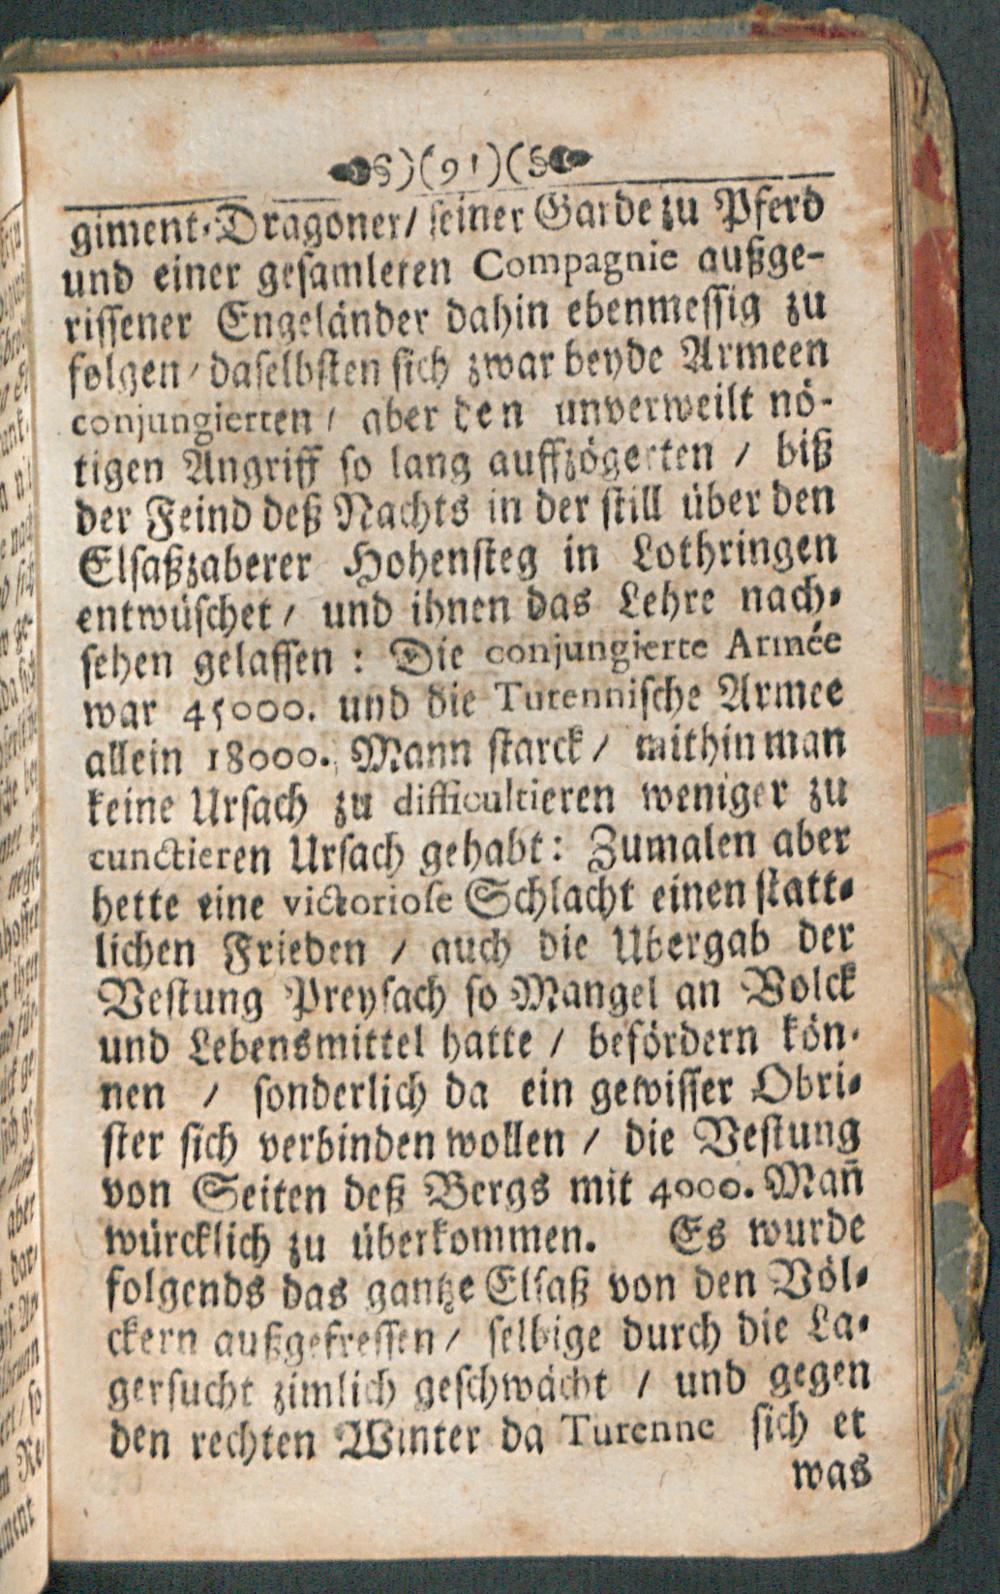 )(91)(
giment-Dragoner/ seiner Garde zu Pferd
und einer gesamleten Compagnie außge-
rissener Engeländer dahin ebenmessig zu
folgen/ daselbsten sich zwar beyde Armeen
conjungierten/ aber den unverweilt nö-
tigen Angriff so lang auffzögerten / biß
der Feind deß Nachts in der still über den
Elsaßzaberer Hohensteg in Lothringen
entwüschet/ und ihnen das Lehre nach-
sehen gelassen : Die conjungierte Armée
war 45000. und die Turennische Armee
allein 18000. Mann starck/ mithin man
keine Ursach zu difficultieren weniger zu
cunctieren Ursach gehabt: Zumalen aber
hette eine victoriose Schlacht einen statt-
lichen Frieden / auch die Ubergab der
Vestung Preysach so Mangel an Volck
und Lebensmittel hatte / befördern kön-
nen / sonderlich da ein gewisser Obri-
ster sich verbinden wollen / die Vestung
von Seiten deß Bergs mit 4000. Man̄
würcklich zu überkommen. Es wurde
folgends das gantze Elsaß von den Völ-
ckern außgefressen/ selbige durch die La-
gersucht zimlich geschwächt / und gegen
den rechten Winter da Turenne sich et
was